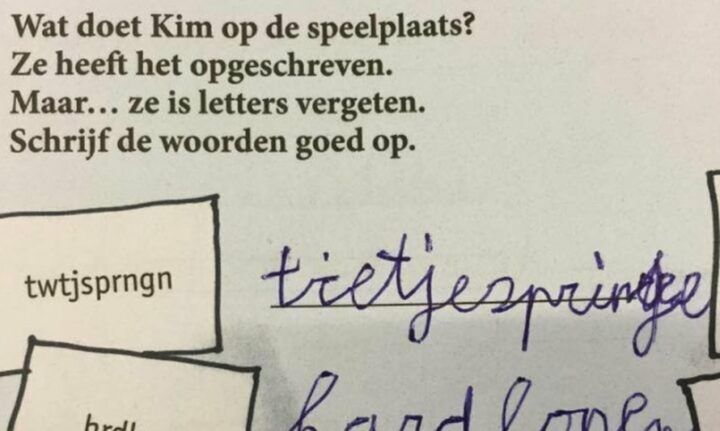 Wat doet Kim op de speelplaats?
Ze heeft het opgeschreven.
Maar... ze is letters vergeten.
Schrijf de woorden goed op.
twtjsprngn tietjespringe
hrdl hardlopen